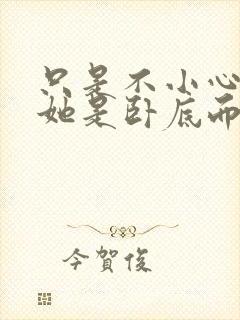 只是不小心
她是卧底而
今賀俊